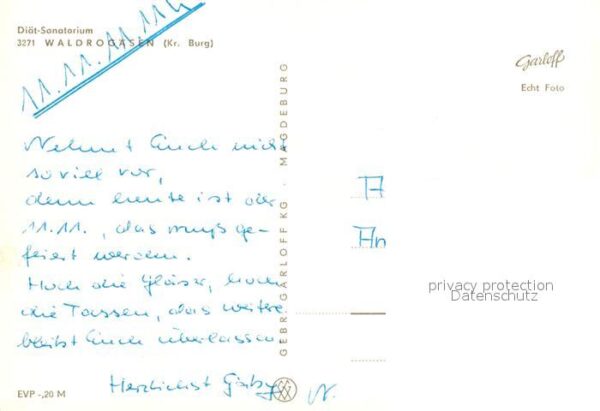 Diät-Sanatorium
3271 WALDROGÄSEN (Kr. Burg)
11.11.11.11
Garloff
Echt Foto
Nehmt Euch nicht
so viel vor,
denn heute ist der
11.11., das muß ge-
feiert werden.
Hoch die Gläser, hoch
die Tassen, das weitere
bleibt Euch überlassen
Herzlichst
GEBR. GARLOFF KG. MAGDEBURG
An
privacy protection
Datenschutz
EVP -,20 M